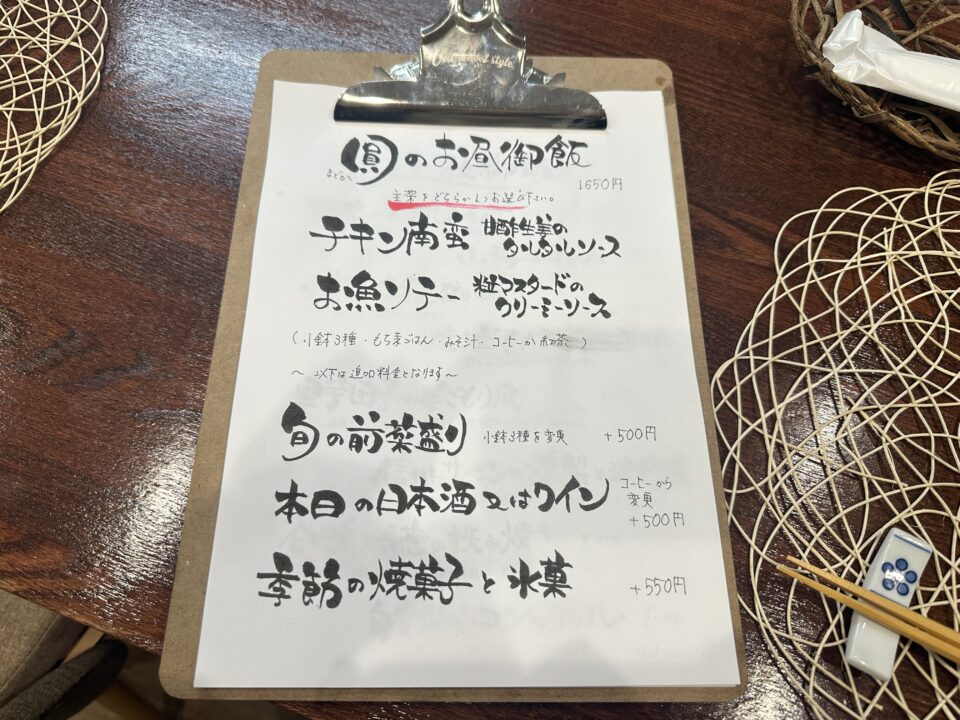 圓のお昼御飯
まどか
1650円
主菜をどちらか1つお選び下さい。
チキン南蛮 甘酢生姜の
タルタルソース
お魚ソテー 粒マスタードの
クリーミーソース
(小鉢3種・もち麦ごはん・みそ汁・コーヒーか紅茶)
～以下は追加料金となります～
旬の前菜盛り 小鉢3種を変更 +500円
本日の日本酒又はワイン コーヒーから
変更
+500円
季節の焼菓子と氷菓 +550円